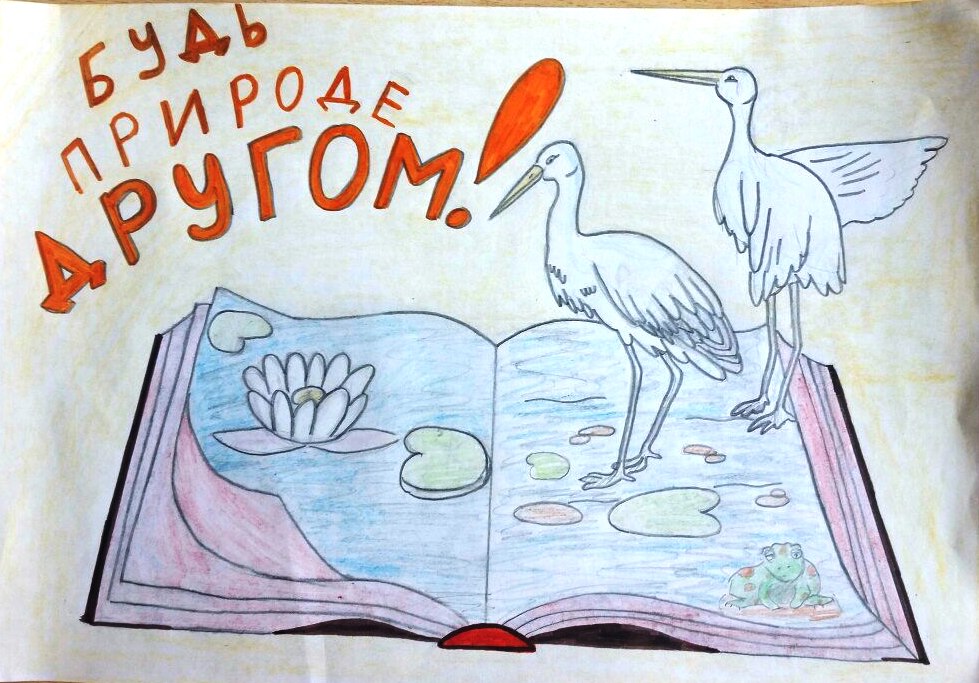 БУДЬ
ПРИРОДЕ
ДРУГОМ!